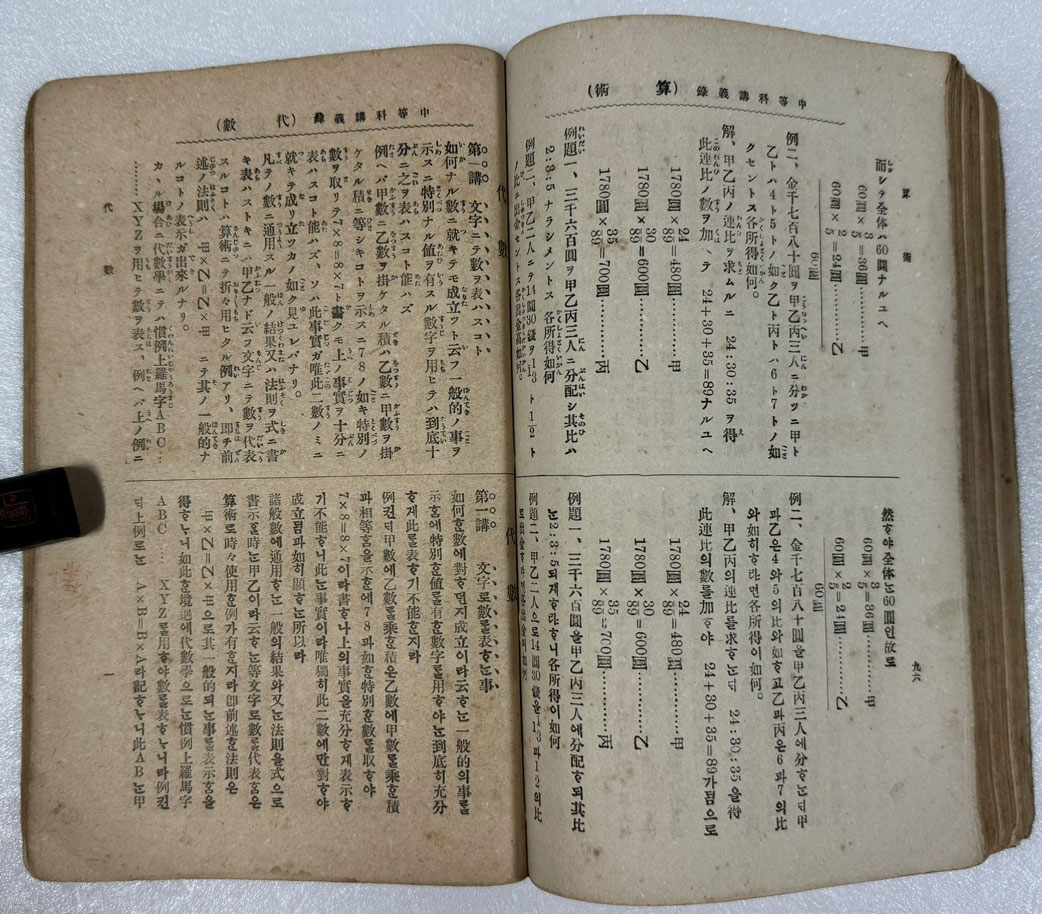 中等科講義錄 (算術)
算術
而シテ全体ハ60圓ナルユヘ
60圓×3/5=36圓………甲
60圓×2/5=24圓………乙
60圓
例二、金千七百八十圓ヲ甲乙丙三人ニ分ツニ甲ト
乙トハ4ト5トノ如ク乙ト丙トハ6ト7トノ如
クセントス各所得如何。
解、甲乙丙ノ連比ヲ求ムルニ 24:30:35 ヲ得
此連比ノ數ヲ加ヘテ 24+30+35=89ナルユヘ
1780圓×24/89=480圓………甲
1780圓×30/89=600圓………乙
1780圓×35/89=700圓………丙
例題一、三千六百圓ヲ甲乙丙三人ニ分配シ其比ハ
2:3:5 ナラシメントス 各所得如何
例題二、甲乙二人ニテ14圓30錢ヲ
九六
然ᄒᆞ야全体는60圓인故로
60圓×3/5=36圓………甲
60圓×2/5=24圓………乙
60圓
例二、金千七百八十圓을甲乙丙三人에分ᄒᆞ는ᄃᆡ甲
과乙은4와5의比와如ᄒᆞ고乙과丙은6과7의比
와如히ᄒᆞ라면各所得이如何。
解、甲乙丙의連比를求ᄒᆞ는ᄃᆡ 24:30:35을得
此連比의數를加ᄒᆞ야 24+30+35=89가됨으로
1780圓×24/89=480圓………甲
1780圓×30/89=600圓………乙
1780圓×35/89=700圓………丙
例題一、三千六百圓을甲乙丙三人에分配ᄒᆞ되其比
는2:3:5되게ᄒᆞ라ᄒᆞ니各所得이如何
例題二、甲乙二人으로14圓30錢을
中等科講義錄 (代數)
代數
第一講 文字ニテ數ヲ表ハスコト
如何ナル數ニ就キテモ成立ツト云フ一般的ノ事ヲ
示スニ特別ナル値ヲ有スル數字ヲ用ヒテハ到底十
分ニ之ヲ表ハスコト能ハズ
例ヘバ甲數ニ乙數ヲ掛ケタル積ハ乙數ニ甲數ヲ掛
ケタル積ニ等シキコトヲ示スニ7 8ノ如キ特別ノ
數ヲ取リテ7×8=8×7ト書クモ上ノ事實ヲ十分ニ
表ハスコト能ハズ、ソハ此事實ガ唯此二數ノミニ
就キテ成リ立ツカノ如ク見ユレバナリ。
凡テノ數ニ通用スル一般ノ結果又ハ法則ヲ式ニ書
キ表ハストキニハ甲乙ナド云フ文字ニテ數ヲ代表
スルコトハ算術ニテ折々用ヒタル例アリ、即チ前
述ノ法則ハ 甲×乙=乙×甲 ニテ其ノ一般的ナ
ルコトノ表示ガ出來ルナリ。
カヽル場合ニ代數學ニテハ慣例上羅馬字ABC…
………XYZヲ用ヒテ數ヲ表ス、例ヘバ上ノ例ニ
代數
第一講 文字로數를表ᄒᆞ는事
如何ᄒᆞᆫ數에對ᄒᆞ던지成立이라云ᄒᆞ는一般的의事를
示ᄒᆞᆷ에特別ᄒᆞᆫ値를有ᄒᆞᆫ數字를用ᄒᆞ야는到底히充分
ᄒᆞ게此를表ᄒᆞ기不能ᄒᆞᆫ지라
例컨ᄃᆡ甲數에乙數를乘ᄒᆞᆫ積은乙數에甲數를乘ᄒᆞᆫ積
과相等ᄒᆞᆷ을示ᄒᆞᆷ에7 8과如ᄒᆞᆫ特別ᄒᆞᆫ數를取ᄒᆞ야
7×8=8×7이라書ᄒᆞ나上의事實을充分ᄒᆞ게表示ᄒᆞ
기不能ᄒᆞ니此는事實이라唯獨히此二數에만對ᄒᆞ야
成立됨과如히顯ᄒᆞ는所以라
諸般數에通用ᄒᆞ는一般의結果와又는法則을式으로
書示ᄒᆞᆯ時는甲乙이라云ᄒᆞ는等文字로數를代表ᄒᆞᆷ은
算術로時々使用ᄒᆞᆫ例가有ᄒᆞᆫ지라卽前述ᄒᆞᆫ法則은
甲×乙=乙×甲으로其一般的되는事를表示ᄒᆞᆷ을
得ᄒᆞᄂᆞ니如此ᄒᆞᆫ境遇에代數學으로는慣例上羅馬字
ABC…… XYZ를用ᄒᆞ야數를表ᄒᆞᄂᆞ니라例컨
ᄃᆡ上例로는 A×B=B×A라記ᄒᆞᄂᆞ니此AB는甲
代數
一